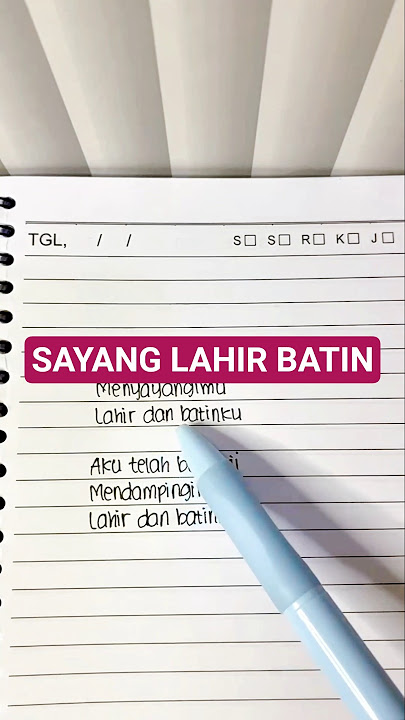 TGL, / / S□ S□ R□ K□ J□
SAYANG LAHIR BATIN
Menyayangimu
Lahir dan batinku
Aku telah
Mendampingi
Lahir dan